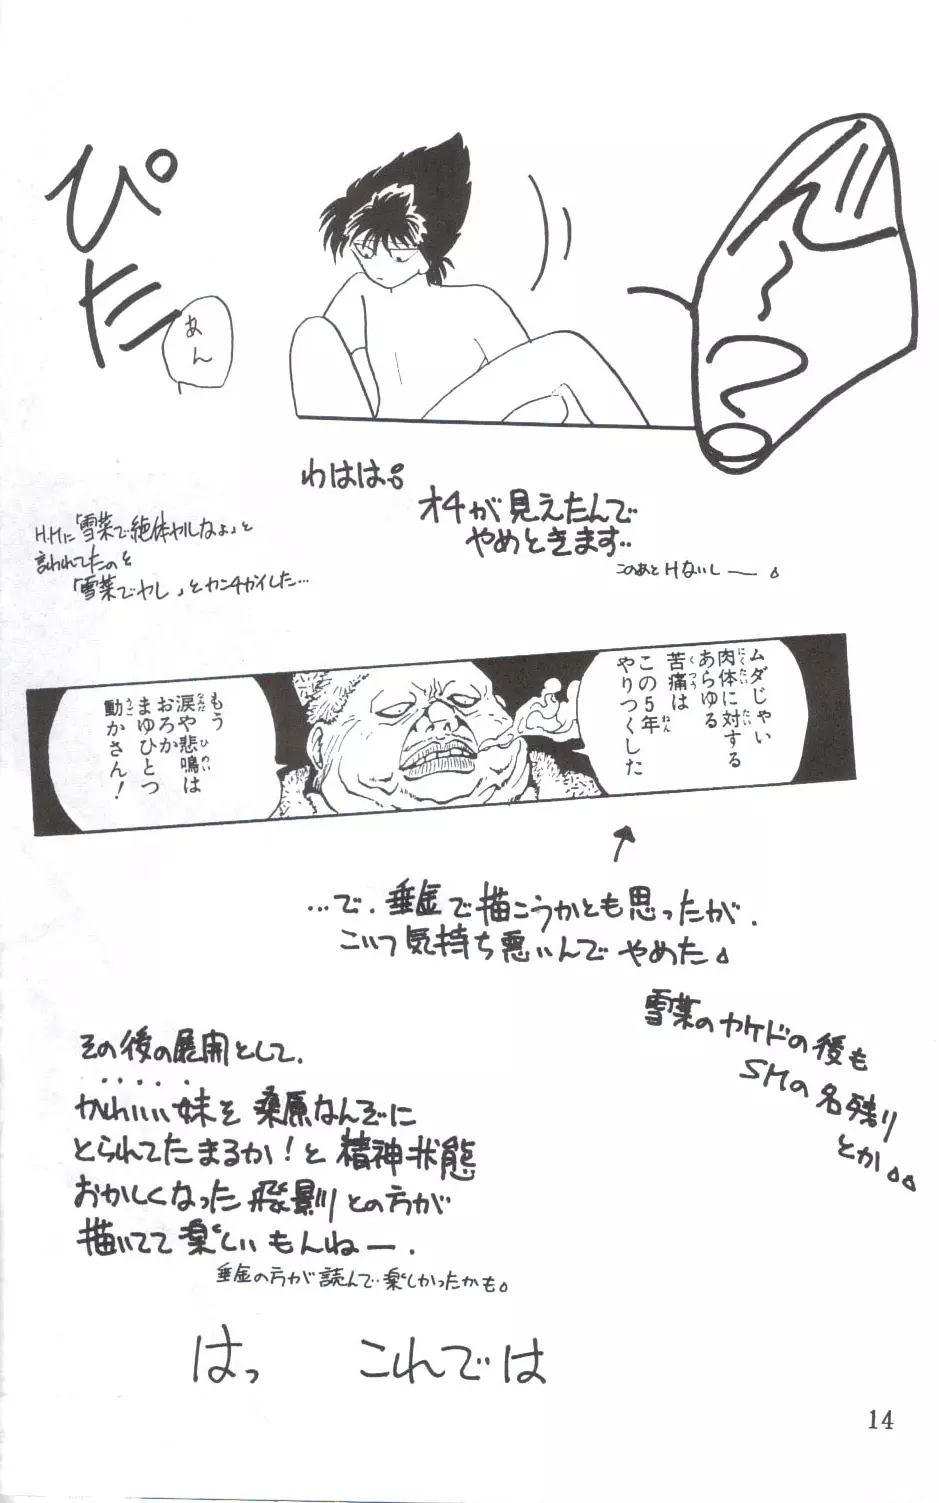 ぴた
あん
わはは。
オチが見えたんで
やめときます‥
このあとHないしー。
H.Hに「雪菜で絶体ヤルなよ」と
言われてたのを
「雪菜でヤレ」とカンチガイした…
ムダじゃい
肉体に対する
あらゆる
苦痛は
この5年
やりつくした
もう
涙や悲鳴は
おろか
まゆひとつ
動かさん！
…で、垂金で描こうかとも思ったが、
こいつ気持ち悪いんでやめた。
雪菜のヤケドの後も
SMの名残り
とか。。
その後の展開として、
かわいい妹を桑原なんぞに
とられてたまるか！と精神状態
おかしくなった飛影との方が
描いてて楽しいもんねー.
垂金の方が読んで楽しかったかも。
はっ　これでは
14